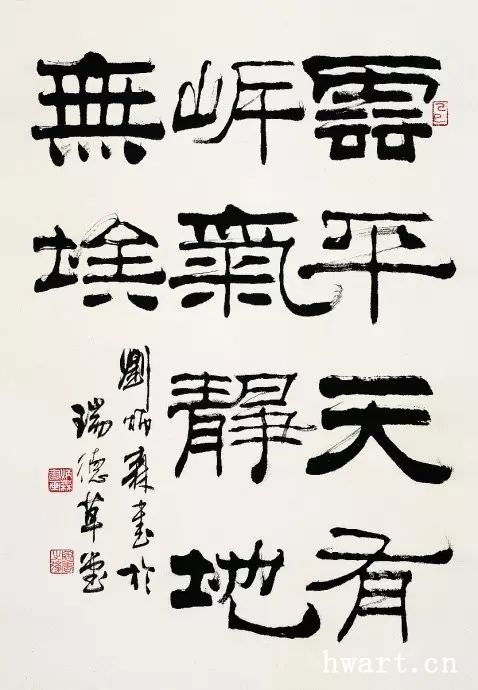 雲平天有
岸氣靜地
無埃
劉炳森書於
瑞德草堂
hwart.cn